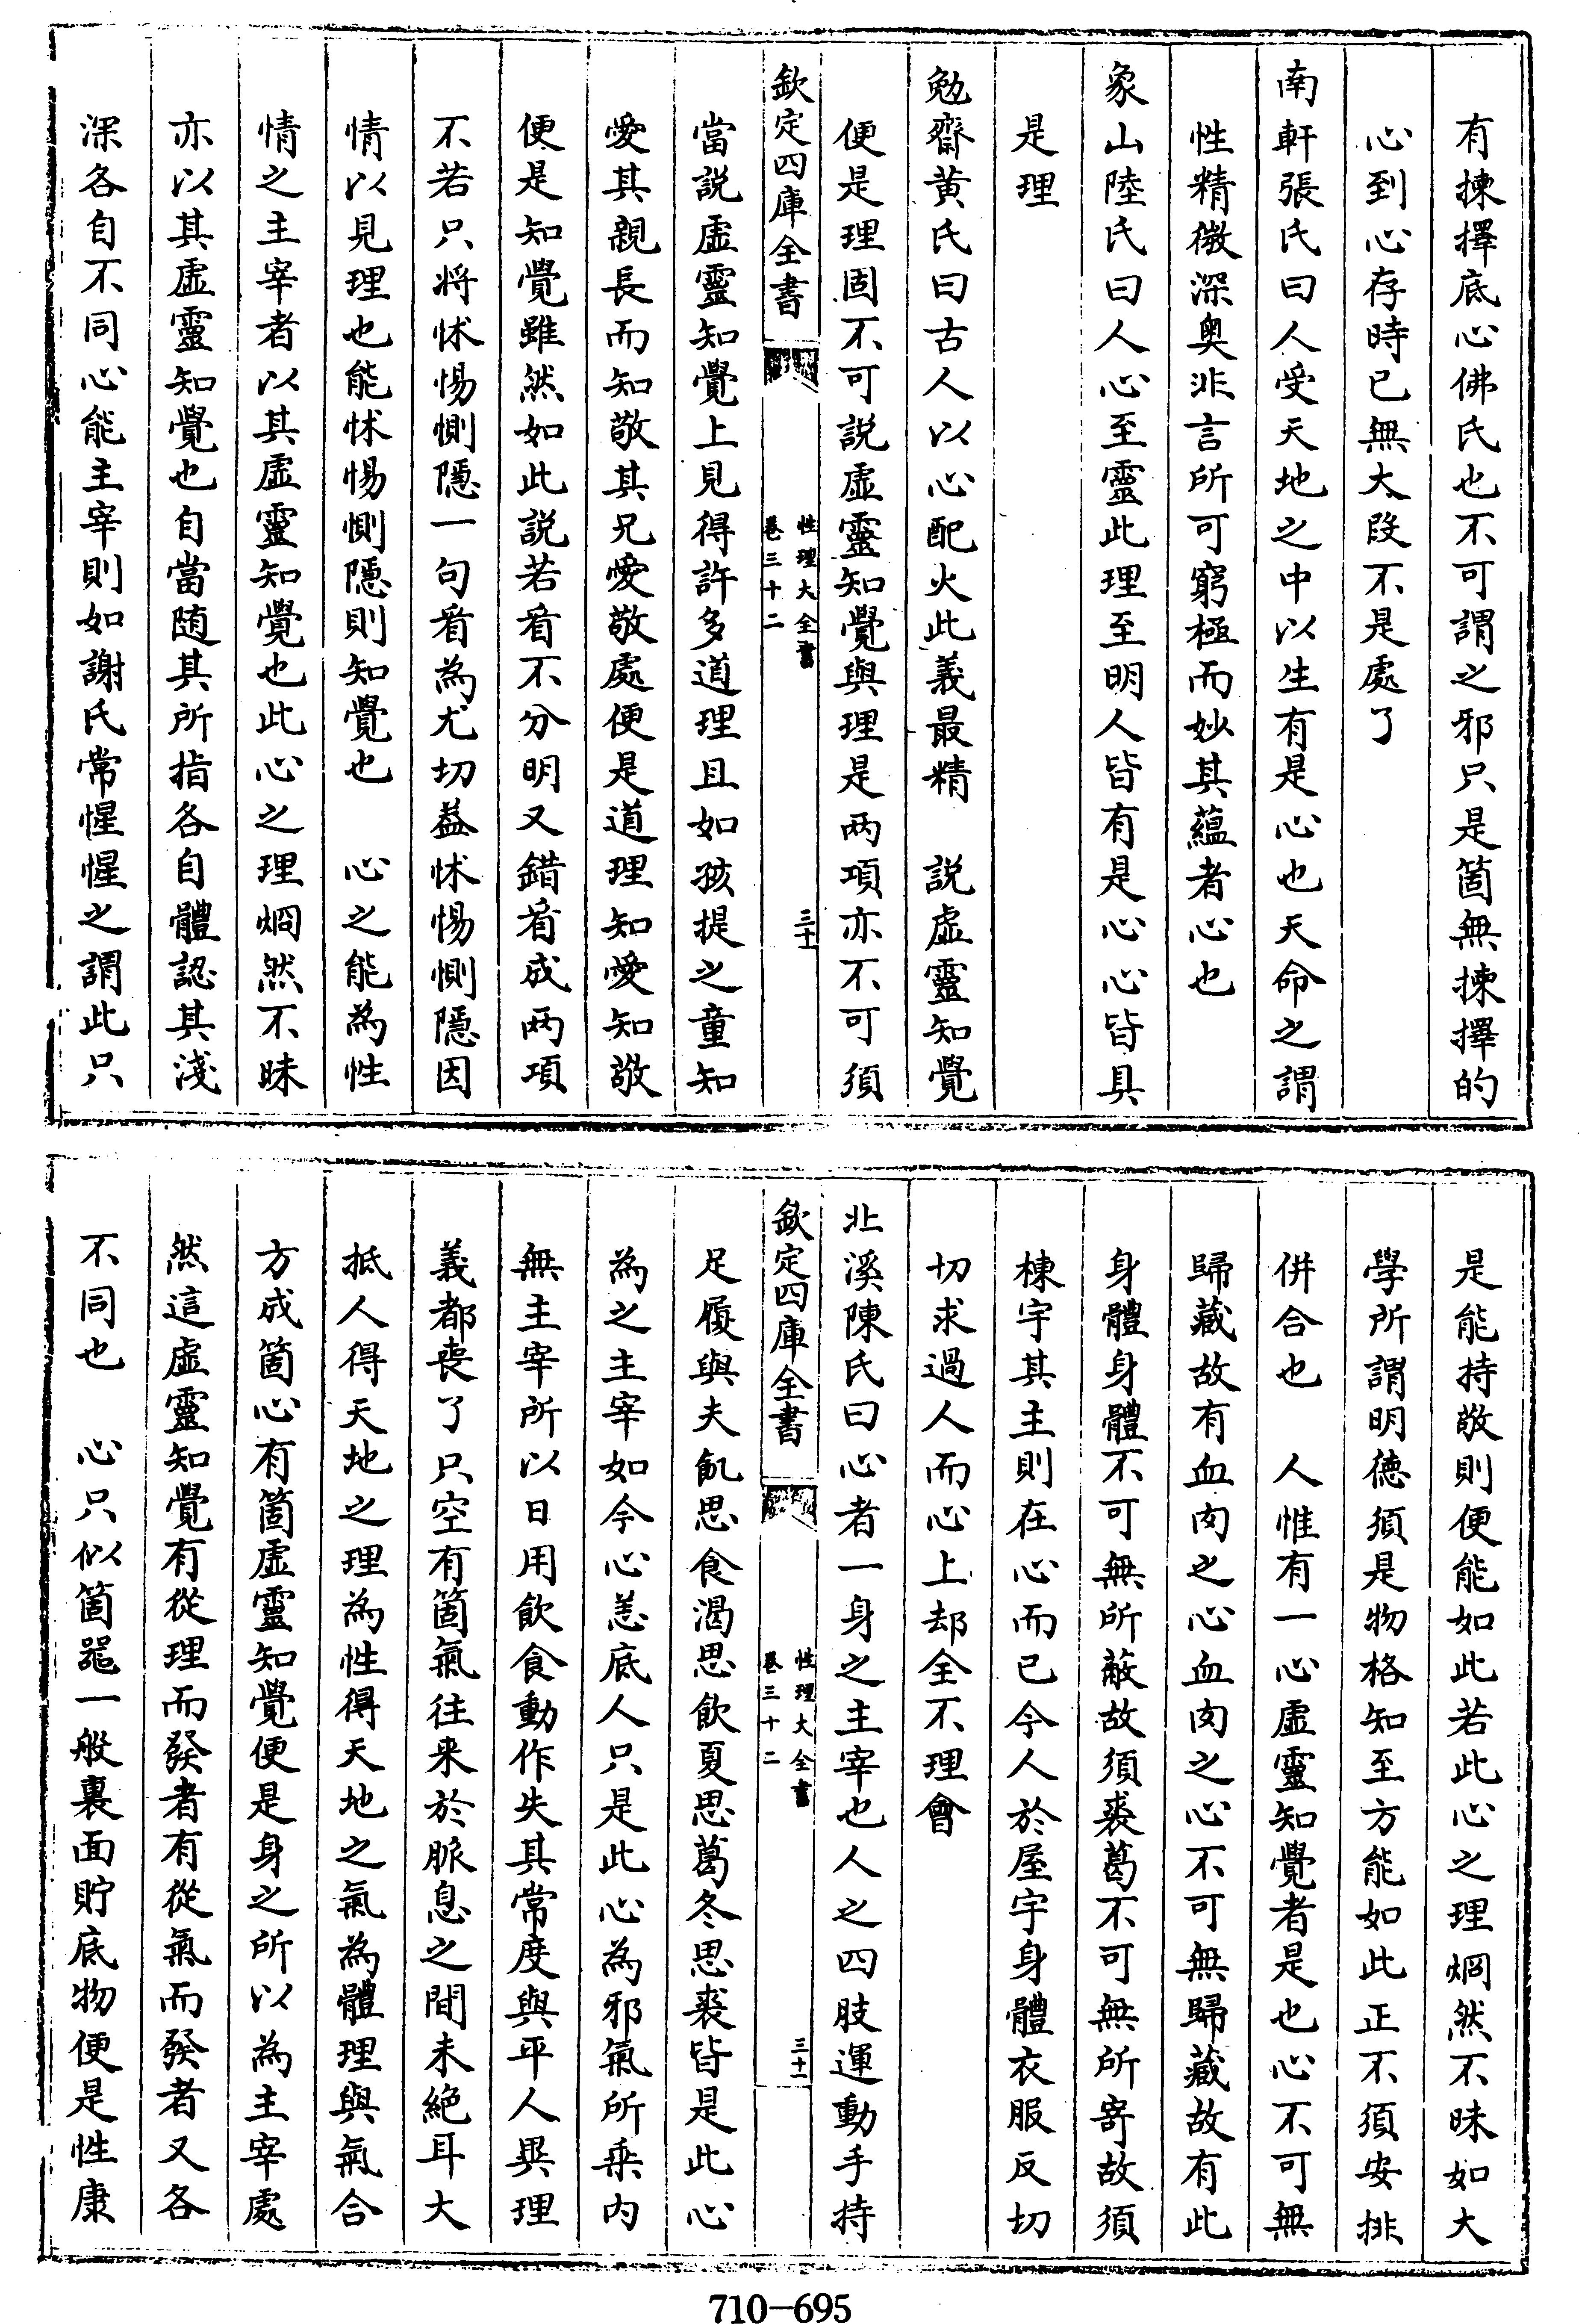 有揀擇底心佛氏也不可謂之邪只是箇無揀擇的
心到心存時已無大段不是處了
南軒張氏曰人受天地之中以生有是心也天命之謂
性精微深奥非言所可窮極而妙其蘊者心也
象山陸氏曰人心至靈此理至明人皆有是心心皆具
是理
勉齋黄氏曰古人以心配火此義最精　説虚靈知覺
便是理固不可説虚靈知覺與理是两項亦不可須
欽定四庫全書
性理大全書
卷三十二
三十
當説虚靈知覺上見得許多道理且如孩提之童知
愛其親長而知敬其兄愛敬處便是道理知愛知敬
便是知覺雖然如此説若㸔不分明又錯㸔成两項
不若只將怵惕惻隱一句㸔為尤切葢怵惕惻隱因
情以見理也能怵惕惻隱則知覺也　心之能為性
情之主宰者以其虚靈知覺也此心之理烱然不昧
亦以其虚靈知覺也自當随其所指各自體認其淺
深各自不同心能主宰則如謝氏常惺惺之謂此只
是能持敬則便能如此若此心之理烱然不昧如大
學所謂明徳須是物格知至方能如此正不須安排
併合也　人惟有一心虚靈知覺者是也心不可無
歸藏故有血肉之心血肉之心不可無歸藏故有此
身體身體不可無所蔽故須裘葛不可無所寄故須
棟宇其主則在心而已今人於屋宇身體衣服反切
切求過人而心上却全不理會
北溪陳氏曰心者一身之主宰也人之四肢運動手持
欽定四庫全書
性理大全書
卷三十二
三十一
足履與夫飢思食渴思飲夏思葛冬思裘皆是此心
為之主宰如今心恙底人只是此心為邪氣所乗内
無主宰所以日用飲食動作失其常度與平人異理
義都喪了只空有箇氣往来於脈息之間未絶耳大
抵人得天地之理為性得天地之氣為體理與氣合
方成箇心有箇虚靈知覺便是身之所以為主宰處
然這虚靈知覺有從理而發者有從氣而發者又各
不同也　心只似箇噐一般裏面貯底物便是性康
710-695